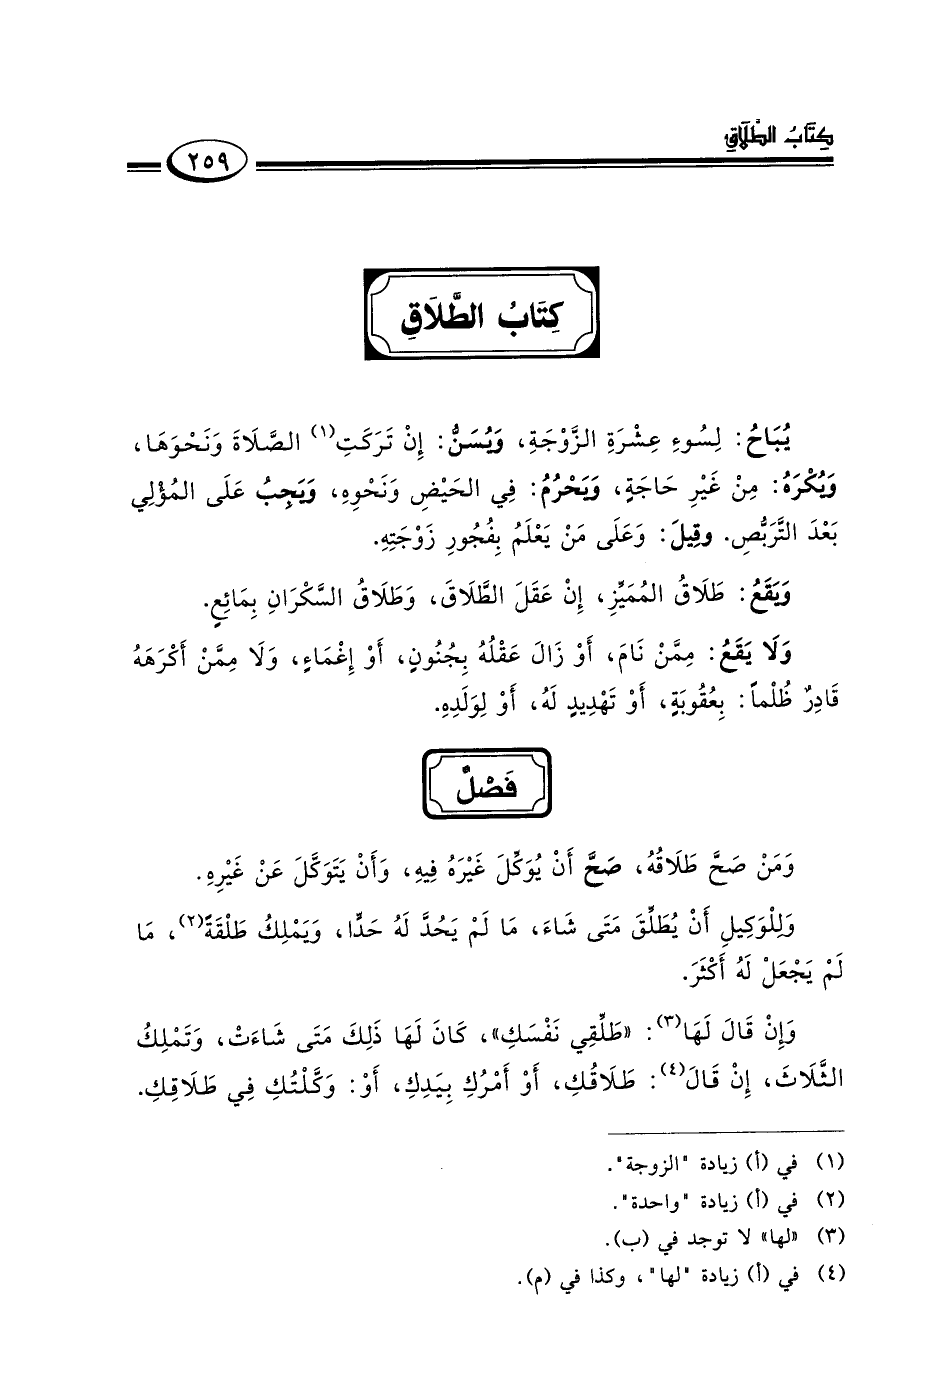 كِتَابُ الطَّلَاقِ
٢٥٩
كِتَابُ الطَّلَاقِ
يُبَاحُ: لِسُوءِ عِشْرَةِ الزَّوْجَةِ، وَيُسَنُّ: إِنْ تَرَكَتِ(١) الصَّلَاةَ وَنَحْوَهَا،
وَيُكْرَهُ: مِنْ غَيْرِ حَاجَةٍ، وَيَحْرُمُ: فِي الحَيْضِ وَنَحْوِهِ، وَيَجِبُ عَلَى المُؤْلِي
بَعْدَ التَّرَبُّصِ. وقِيلَ: وَعَلَى مَنْ يَعْلَمُ بِفُجُورِ زَوْجَتِهِ.
وَيَقَعُ: طَلَاقُ المُمَيِّزِ، إِنْ عَقَلَ الطَّلَاقَ، وَطَلَاقُ السَّكْرَانِ بِمَائِعٍ.
وَلَا يَقَعُ: مِمَّنْ نَامَ، أَوْ زَالَ عَقْلُهُ بِجُنُونٍ، أَوْ إِغْمَاءٍ، وَلَا مِمَّنْ أَكْرَهَهُ
قَادِرٌ ظُلْماً: بِعُقُوبَةٍ، أَوْ تَهْدِيدٍ لَهُ، أَوْ لِوَلَدِهِ.
فَصْلٌ
وَمَنْ صَحَّ طَلَاقُهُ، صَحَّ أَنْ يُوَكِّلَ غَيْرَهُ فِيهِ، وَأَنْ يَتَوَكَّلَ عَنْ غَيْرِهِ.
وَلِلْوَكِيلِ أَنْ يُطَلِّقَ مَتَى شَاءَ، مَا لَمْ يَحُدَّ لَهُ حَدًّا، وَيَمْلِكُ طَلْقَةً(٢)، مَا
لَمْ يَجْعَلْ لَهُ أَكْثَرَ.
وَإِنْ قَالَ لَهَا(٣): «طَلِّقِي نَفْسَكِ»، كَانَ لَهَا ذَلِكَ مَتَى شَاءَتْ، وَتَمْلِكُ
الثَّلَاثَ، إِنْ قَالَ(٤): طَلَاقُكِ، أَوْ أَمْرُكِ بِيَدِكِ، أَوْ: وَكَّلْتُكِ فِي طَلَاقِكِ.
(١) في (أ) زيادة "الزوجة".
(٢) في (أ) زيادة "واحدة".
(٣) «لها» لا توجد في (ب).
(٤) في (أ) زيادة "لها"، وكذا في (م).